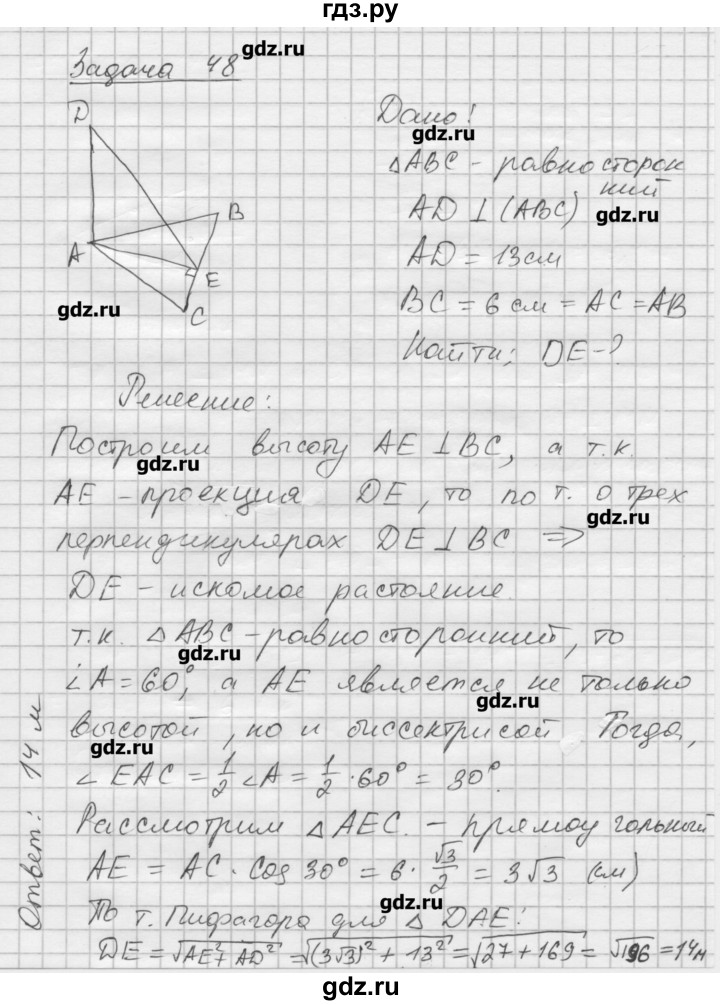 гдз.ру
Задача 48
gdz.ru
D
B
A
E
C
gdz.ru
Дано!
gdz.ru
△ABC - равносторон
ний
AD ⊥ (ABC)
gdz.ru
AD = 13 см
BC = 6 см = AC = AB
Найти: DE - ?
Решение:
Построим высоту AE ⊥ BC, а т.к.
gdz.ru
AE - проекция DE, то по т. о трех
gdz.ru
перпендикулярах DE ⊥ BC ⇒
DE - искомое растояние.
т.к. △ABC - равносторонний, то
gdz.ru
∠A = 60°, а AE является не только
gdz.ru
высотой, но и биссектрисой Тогда,
gdz.ru
∠EAC = 1/2 ∠A = 1/2 · 60° = 30°.
Рассмотрим △AEC. - прямоугольный
AE = AC · cos 30° = 6 · √3/2 = 3√3 (см)
gdz.ru
По т. Пифагора для △DAE:
DE = √AE² + AD² = √(3√3)² + 13² = √27 + 169 = √196 = 14 м
Ответ: 14 м
гдз.ру